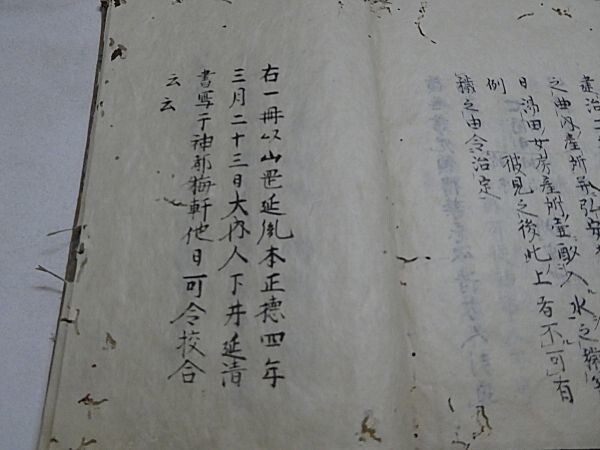 之由内産所并弘安
日満田女房産所壷酌入水之穢
例　彼見之後此上者不可有
穢之由令治定
右一冊以山罡延胤本正徳四年
三月二十三日大内人下井延清
書写于神都梅軒他日可令挍合
云云